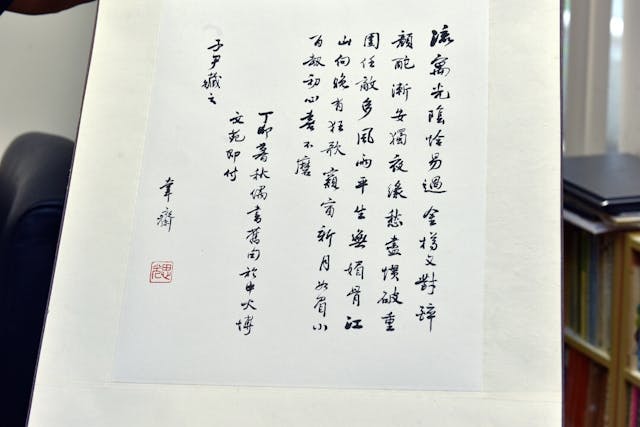 流寓光陰恰易過金樽又對醉
顏酡漸安獨夜緣愁盡慣破重
圍任敵多風雨平生無媚骨江
山向晚有狂歌窺窗新月如眉小
百劫初心喜不磨
丁卯暮秋偶書舊句於申火博
文苑即付
子尹藏之
韋齋